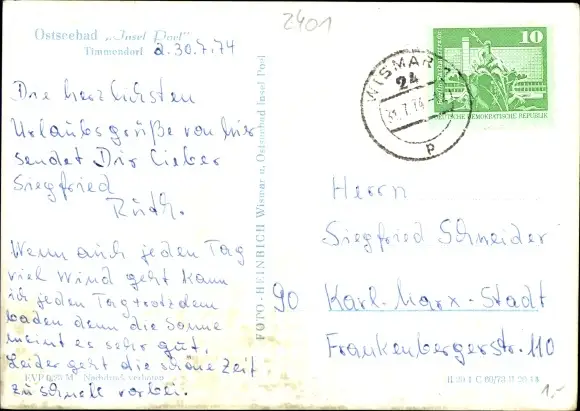 2401
Ostseebad „Insel Poel"
Timmendorf d. 30.7.74
Die herzlichsten
Urlaubsgrüße von hier
sendet Dir lieber
Siegfried
Ruth.
Wenn auch jeden Tag
viel Wind geht kann
ich jeden Tag trotzdem
baden denn die Sonne
meint es sehr gut.
Leider geht die schöne Zeit
zu schnell vorbei.
EVP 0,25 M Nachdruck verboten
FOTO-HEINRICH Wismar u. Ostseebad Insel Poel
10
DEUTSCHE DEMOKRATISCHE REPUBLIK
WISMAR 2
24
31.7.74
p
Herrn
Siegfried Schneider
90 Karl-Marx-Stadt
Frankenbergerstr. 110
1,-